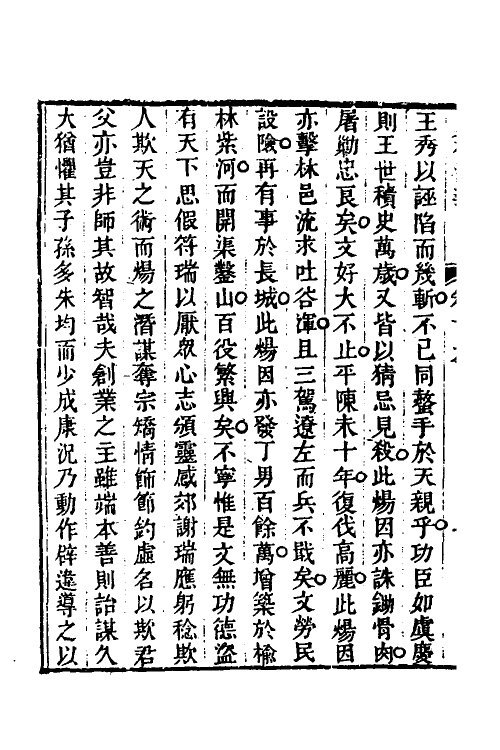 王秀以誣陷而幾斬不已同螫手於天親乎功臣如虞慶
則王世積史萬歲又皆以猜忌見殺此煬因亦誅鋤骨肉
屠勦忠良矣文好大不止平陳未十年復伐高麗此煬因
亦擊林邑流求吐谷渾且三駕遼左而兵不戢矣文勞民
設險再有事於長城此煬因亦發丁男百餘萬增築於榆
林柴河而開渠鑿山百役繁興矣不寧惟是文無功德盜
有天下思假符瑞以厭眾心志頒靈感郊謝瑞應躬稔欺
人欺天之術而煬之潛謀奪宗矯情飾節釣虛名以欺君
父亦豈非師其故智哉夫創業之主雖端本善則詒謀久
大猶懼其子孫多朱均而少成康況乃動作辟違導之以